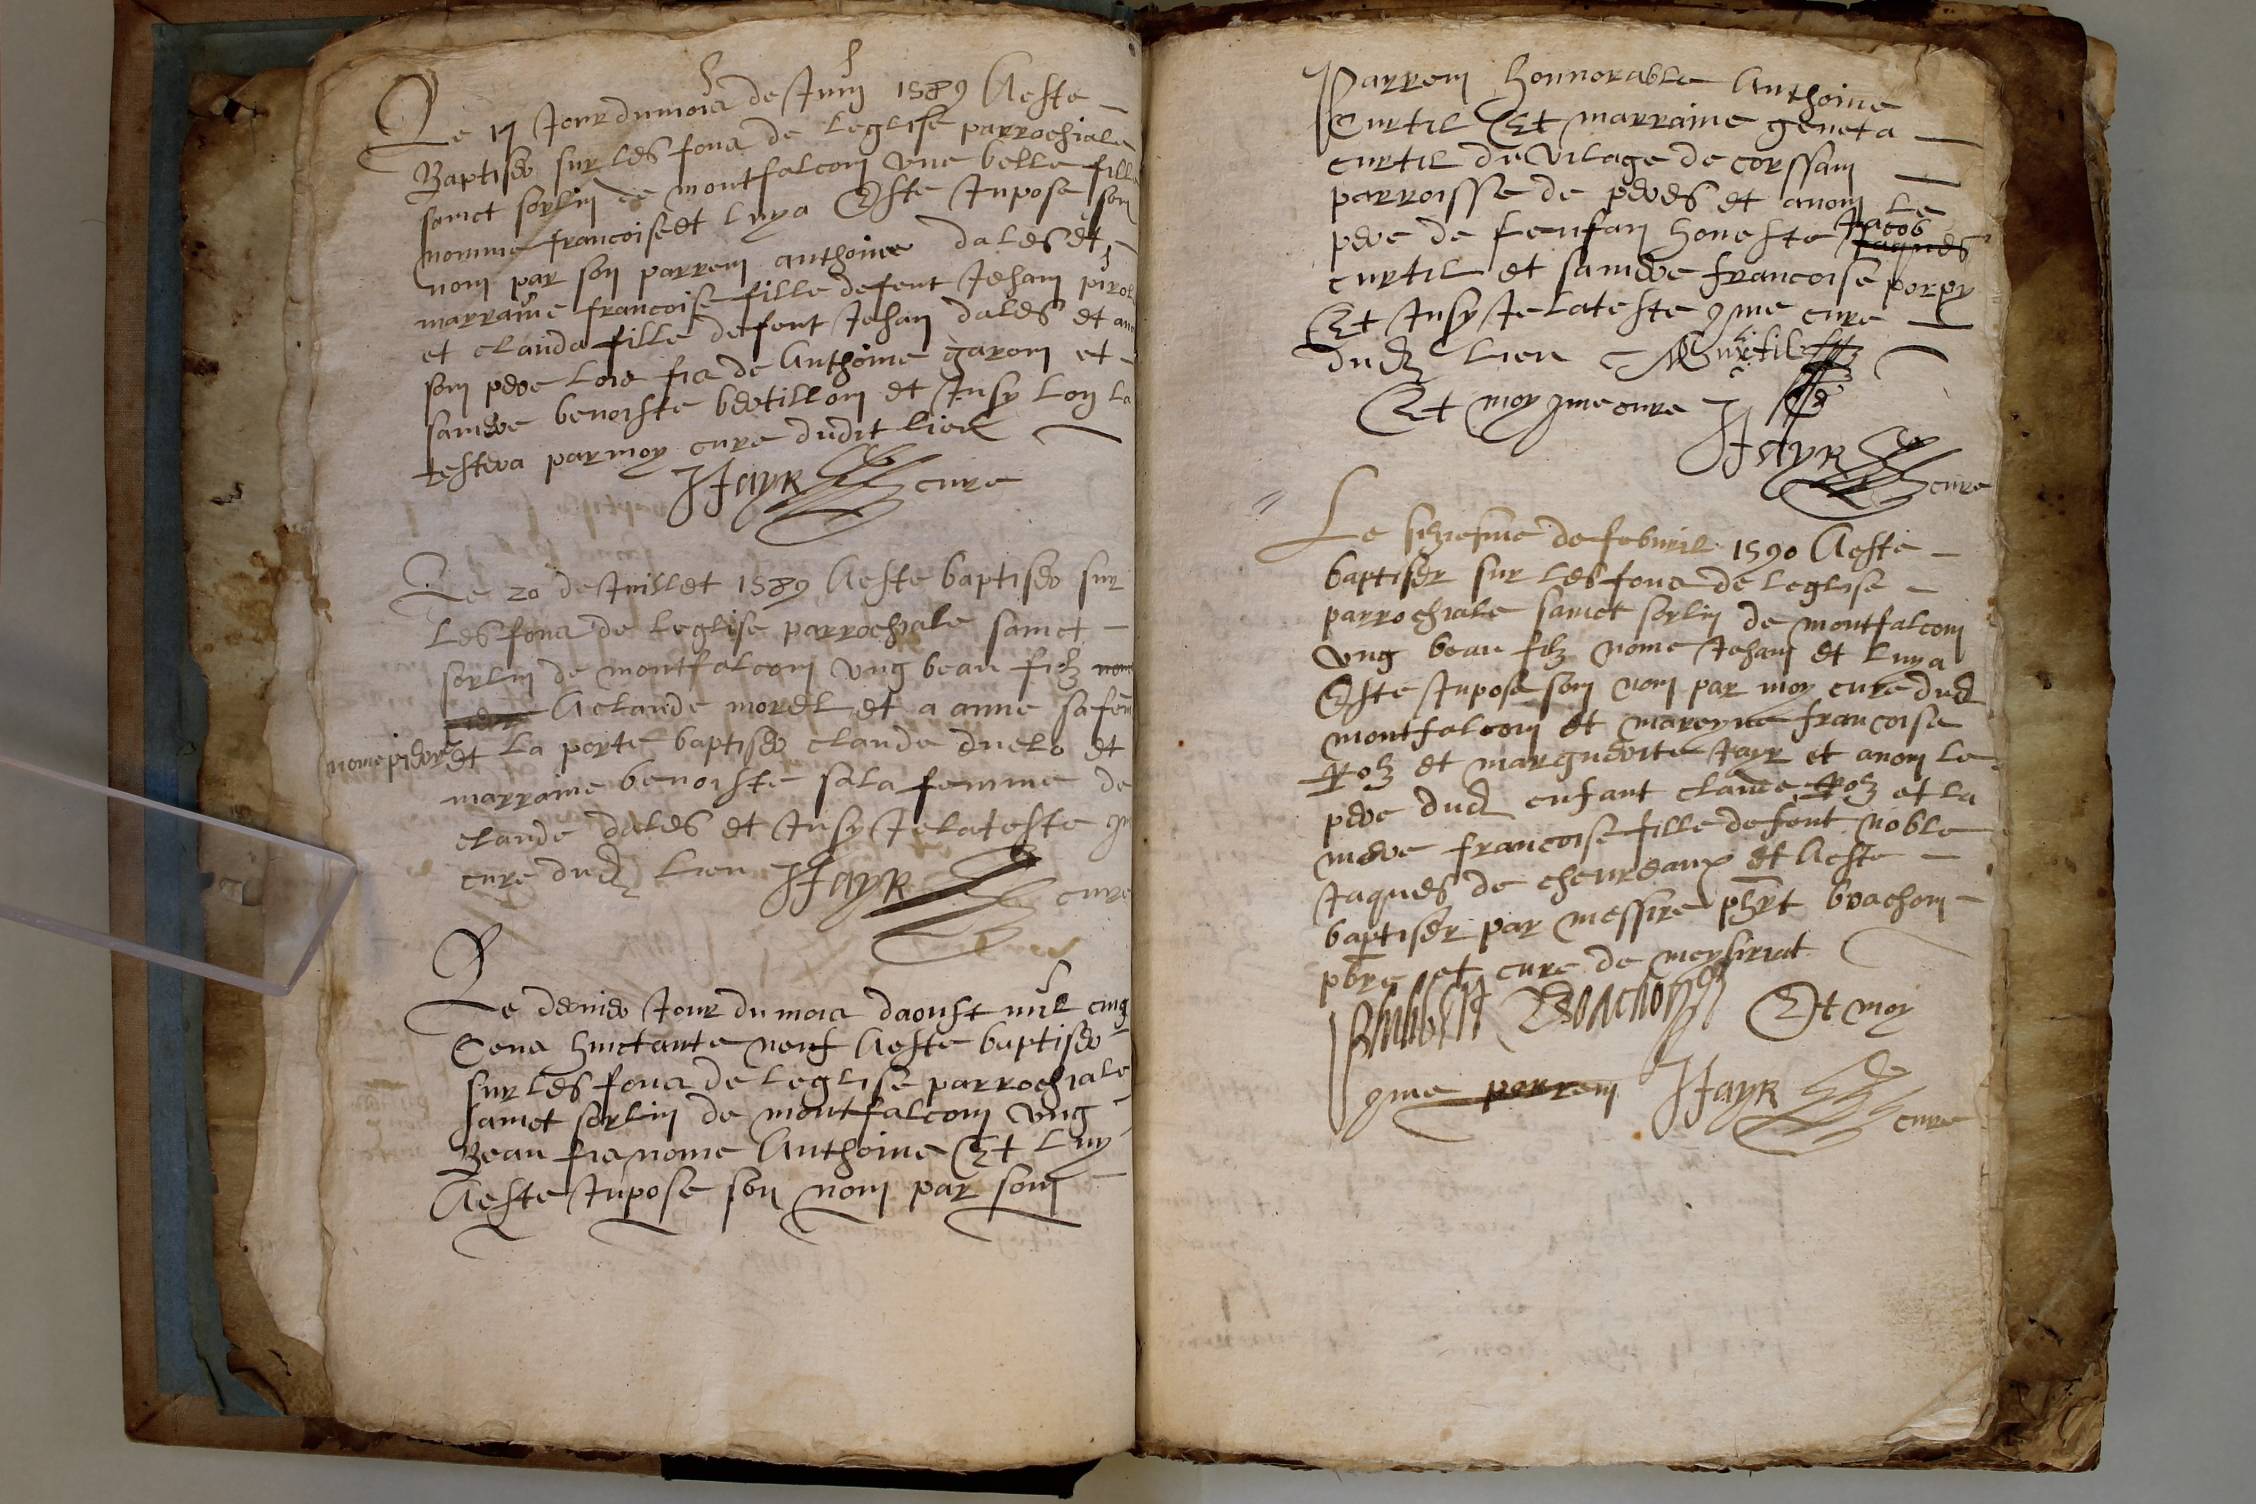 Le 17 Jour du mois de Juing 1589 Aeste
Baptiser sur les fons de leglise parrochiale
sainct sorlin de montfalcon une belle fille
nomme francoise et luy a Este Inpose son
nom par son parrein anthoine dales et
marraine francoise fille de feut Jehan
et clauda fille de feut Jehan dales et
son pere lois fis de Anthoine garon et
sa mere benoiste bertillon et Insy lon la
testera par moy cure dudit lieu
JJayR cure
Le 20 de Juillet 1589 Aeste baptiser sur
les fons de leglise parrochiale sainct
sorlin de montfalcon ung beau filz
A claude morel et a anne sa fem
nome pierre et la porte baptiser claude duelo et
marraine benoiste sala femme de
claude dales et Insy Je lateste
cure dud lieu JJayR cure
Le dernier Jour du mois daoust mil cinq
Cens huictante neuf Aeste baptiser
sur les fons de leglise parrochiale
sainct sorlin de montfalcon ung
Beau fis nome Anthoine Et luy
Aeste Inpose son nom par son
Parrein honnorable Anthoine
Curtil Et marraine geneta
curtil du vilage de corssain
parroisse de peres et a nom le
pere de lenfan honeste Jacob
Jaques
curtil et sa mere francoise
Et Insy Je lateste 9me cure
dud lieu Curtil
Et moy 9me cure
JJayR
cure
Le siziesme de febvril 1590 Aeste
baptiser sur les fons de leglise
parrochiale sainct sorlin de montfalcon
ung beau filz nome Jehan et luy a
Este Inpose son nom par moy cure dud
montfalcon et mareyne francoise
et marguerite Jayr et a nom le
pere dud enfant claude et la
mere francoise fille de feut noble
Jaques de chevreaux et Aeste
baptiser par messire phbrt brachon
pbre et cure de meysiriat
Philibert Brachon Et moy
9me parrein JJayR cure